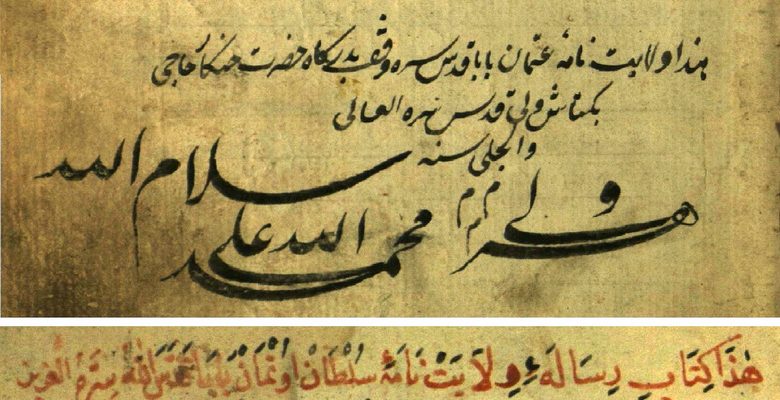 هذا ولايت نامهٔ عثمان بابا قدس سره وقف بدركاه حضرت خنكار حاجی
بكتاش ولی قدس سره العالی
والجلی سنه
سلام الله
محمد الله علی
هَذَا كِتَابِ رِسَالَهءِ وِلَايَتْ نَامَهٔ سُلْطَانْ اوتْمَانْ بَابَا قَدَّسَ اللّٰهُ سِرَّهُ الْعَزِيز